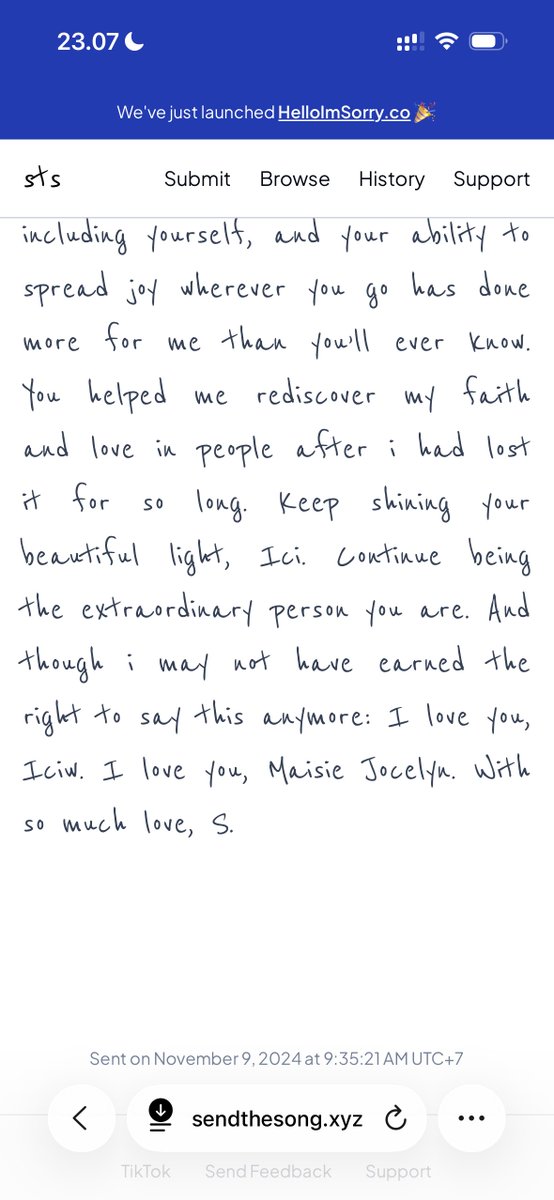 23.07
We've just launched HelloImSorry.co 🎉
sts Submit Browse History Support
including yourself, and your ability to
spread joy wherever you go has done
more for me than you'll ever know.
You helped me rediscover my faith
and love in people after i had lost
it for so long. Keep shining your
beautiful light, Ici. Continue being
the extraordinary person you are. And
though i may not have earned the
right to say this anymore: I love you,
Iciw. I love you, Maisie Jocelyn. With
so much love, S.
Sent on November 9, 2024 at 9:35:21 AM UTC+7
sendthesong.xyz
TikTok Send Feedback Support